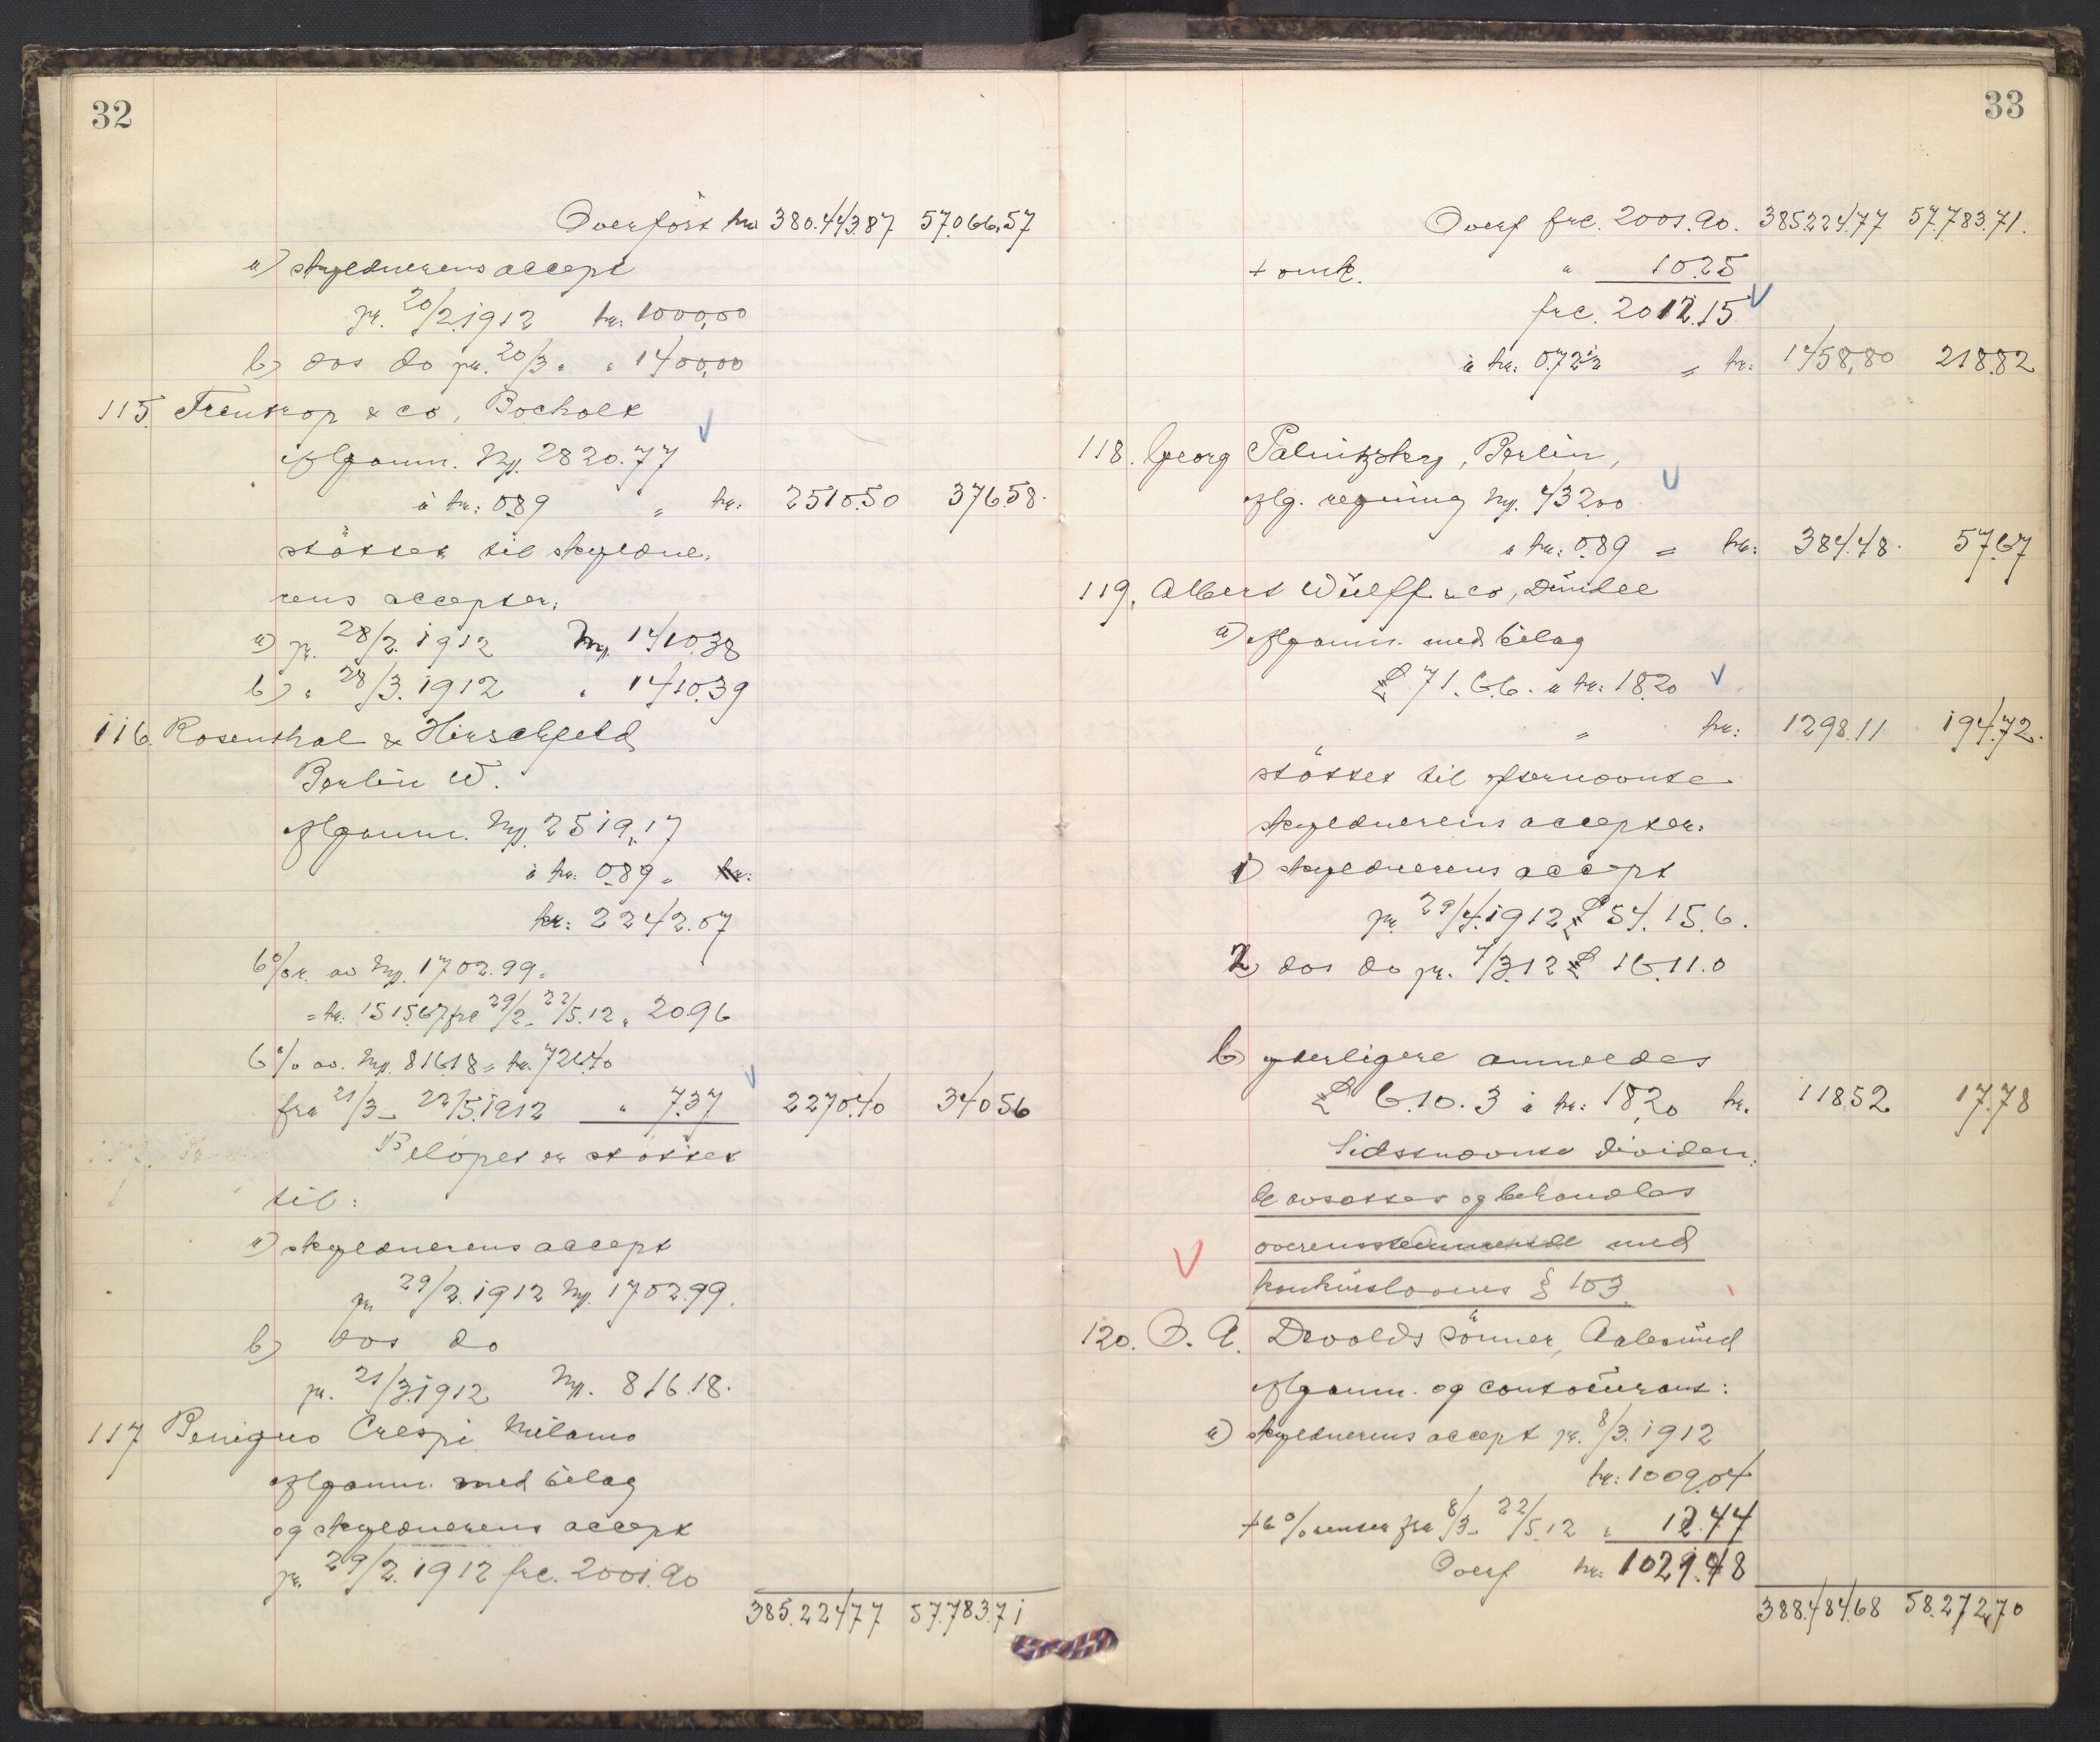 32
Overført kr. 380.443.87 57.066,57
a) skyldnerens accept
pr. 20/2.1912 kr: 1000,00
b) dos do pr. 20/3 " " 1400,00
115. Trentrop & co, Bocholt
ifl ganm. Mk. 2820.77
à kr: 0.89 = kr: 2510.50 376.58.
støttet til skyldne-
rens accepter:
a) pr. 28/2. 1912 Mk. 1410.38
b) " 28/3. 1912 " 1410.39
116. Rosenthal & Hirschfeld
Berlin W.
Mk. 2519,17
à kr. 0.89 = kr:
kr: 2242.07
6% r. av Mk. 1702.99.
= kr. 1515.67 fra 29/2 - 22/5.12 " 20.96
6% av. Mk. 816.18 = kr. 726.40
fra 21/3 - 22/5.1912 " 7.37 2270.40 340.56
Beløpet er støttet
til:
a) skyldnerens accept
pr. 29/2. 1912 Mk. 1702.99.
b) dos do
pr. 21/3.1912 Mk. 816.18.
117 Benigno Crespi, Milano
med bilag
og skyldnerens accept
pr. 29/2. 1912 frc. 2001.90
385.224.77 57.783.71
33
Overf frc. 2001.90. 385.224.77 57.783.71.
+ omk. " 10.25
frc. 2012.15
à kr: 0.72½ = kr: 1458,80 218.82
118. Georg Palnitzky, Berlin,
regning Mk. 432.00
à kr: 0.89 = kr: 384.48. 57.67
119. Albert Wulff & co, Dundee
a) med bilag
£ 71.6.6. à kr: 18.20
= kr: 1298.11 194.72.
støttet til
skyldnerens accepter:
1) skyldnerens accept
pr. 29/4.1912 £ 54.15.6.
2) dos do pr. 4/3.12 £ 16.11.0
b) yterligere anmeldes
£ 6.10.3 à kr: 18,20 kr. 118.52 17.78
Sidstnævnte dividen-
de avsættes og behandles
overensstemmende med
konkurslovens § 103.
120. O. A. Devolds Sönner, Aalesund
og contocurant:
a) skyldnerens accept pr. 8/3. 1912
kr: 1009,04
+ 6% renter fra 8/3 - 22/5.12 " 12.44
Overf kr: 1021.48
388.484.68 58.272,70